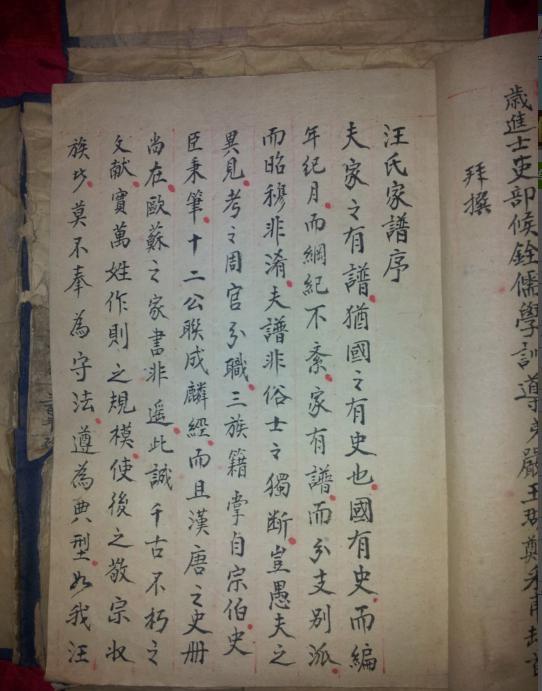 歲進士吏部候銓儒學訓導
拜撰
汪氏家譜序
夫家之有譜猶國之有史也國有史而編
年紀月而綱紀不紊家有譜而分支別派
而昭穆非淆夫譜非俗士之獨斷豈愚夫之
異見考之周官分職三族籍掌自宗伯史
臣秉筆十二公聯成麟經而且漢唐之史冊
尚在歐蘇之家書非遥此誠千古不朽之
文献實萬姓作則之規模使後之敬宗收
族步莫不奉為守法遵為典型如我汪